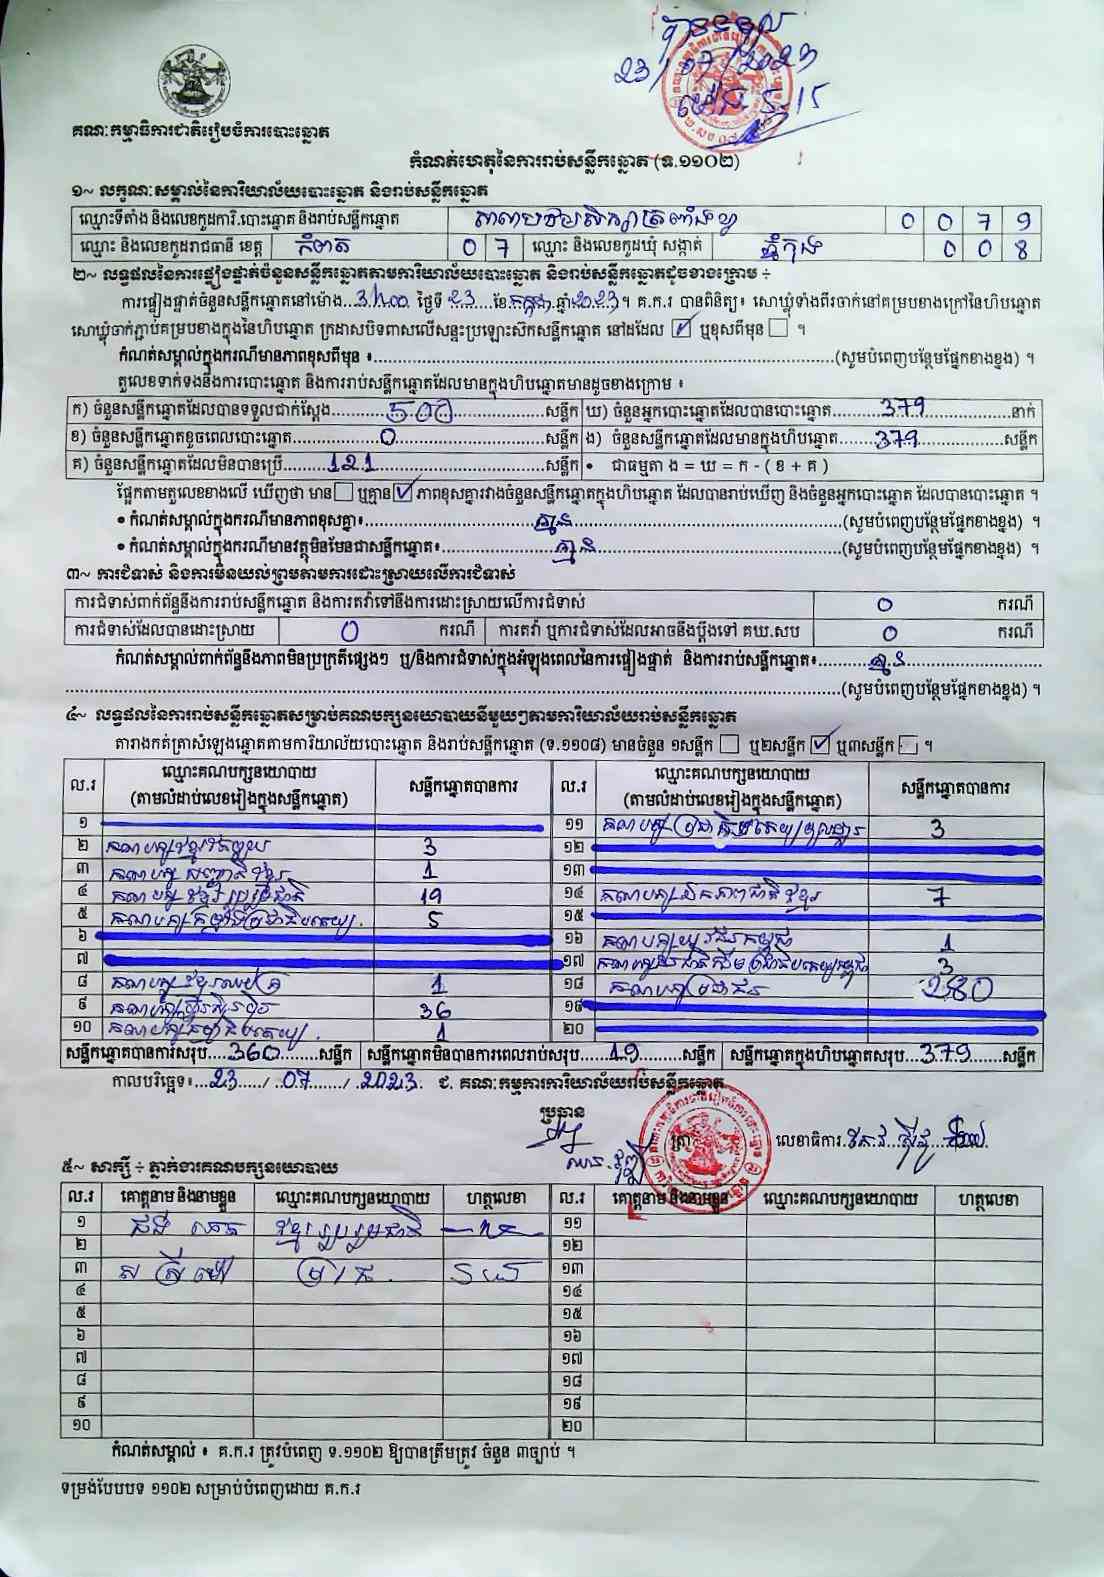 បានទទួល
23/07/2023
គណៈកម្មាធិការជាតិរៀបចំការបោះឆ្នោត
កំណត់ហេតុនៃការរាប់សន្លឹកឆ្នោត (ទ.១១០២)
១~ លក្ខណៈសម្គាល់នៃការិយាល័យបោះឆ្នោត និងរាប់សន្លឹកឆ្នោត
ឈ្មោះទីតាំង និងលេខកូដការិ.បោះឆ្នោត និងរាប់សន្លឹកឆ្នោត 0 0 7 9
ឈ្មោះ និងលេខកូដរាជធានី ខេត្ត កំពត 0 7 ឈ្មោះ និងលេខកូដឃុំ សង្កាត់ 0 0 8
២~ លទ្ធផលនៃការផ្ទៀងផ្ទាត់ចំនួនសន្លឹកឆ្នោតតាមការិយាល័យបោះឆ្នោត និងរាប់សន្លឹកឆ្នោតដូចខាងក្រោម ÷
ការផ្ទៀងផ្ទាត់ចំនួនសន្លឹកឆ្នោតនៅម៉ោង...3h00 ថ្ងៃទី 23 ខែ កក្កដា ឆ្នាំ 2023។ គ.ក.រ បានពិនិត្យ៖ សោឃ្លុំទាំងពីរចាក់នៅគម្របខាងក្រៅនៃហិបឆ្នោត
សោឃ្លុំចាក់ភ្ជាប់គម្របខាងក្នុងនៃហិបឆ្នោត ក្រដាសបិទពាសលើសន្ទះប្រឡោះស៊កសន្លឹកឆ្នោត នៅដដែល ☑ ឬខុសពីមុន ☐ ។
កំណត់សម្គាល់ក្នុងករណីមានភាពខុសពីមុន ៖...(សូមបំពេញបន្ថែមផ្នែកខាងខ្នង) ។
តួលេខទាក់ទងនឹងការបោះឆ្នោត និងការរាប់សន្លឹកឆ្នោតដែលមានក្នុងហិបឆ្នោតមានដូចខាងក្រោម ៖
ក) ចំនួនសន្លឹកឆ្នោតដែលបានទទួលជាក់ស្តែង...500...សន្លឹក ឃ) ចំនួនអ្នកបោះឆ្នោតដែលបានបោះឆ្នោត...379...នាក់
ខ) ចំនួនសន្លឹកឆ្នោតខូចពេលបោះឆ្នោត...0...សន្លឹក ង) ចំនួនសន្លឹកឆ្នោតដែលមានក្នុងហិបឆ្នោត...379...សន្លឹក
គ) ចំនួនសន្លឹកឆ្នោតដែលមិនបានប្រើ...121...សន្លឹក • ជាធម្មតា ង = ឃ = ក - ( ខ + គ )
ផ្អែកតាមតួលេខខាងលើ ឃើញថា មាន ☐ ឬគ្មាន ☑ ភាពខុសគ្នារវាងចំនួនសន្លឹកឆ្នោតក្នុងហិបឆ្នោត ដែលបានរាប់ឃើញ និងចំនួនអ្នកបោះឆ្នោត ដែលបានបោះឆ្នោត ។
• កំណត់សម្គាល់ក្នុងករណីមានភាពខុសគ្នា៖...គ្មាន...(សូមបំពេញបន្ថែមផ្នែកខាងខ្នង) ។
• កំណត់សម្គាល់ក្នុងករណីមានវត្ថុមិនមែនជាសន្លឹកឆ្នោត៖...គ្មាន...(សូមបំពេញបន្ថែមផ្នែកខាងខ្នង) ។
៣~ ការជំទាស់ និងការមិនយល់ព្រមតាមការដោះស្រាយលើការជំទាស់
ការជំទាស់ពាក់ព័ន្ធនឹងការរាប់សន្លឹកឆ្នោត និងការតវ៉ាទៅនឹងការដោះស្រាយលើការជំទាស់ 0 ករណី
ការជំទាស់ដែលបានដោះស្រាយ 0 ករណី ការតវ៉ា ឬការជំទាស់ដែលអាចនឹងប្តឹងទៅ គឃ.សប 0 ករណី
កំណត់សម្គាល់ពាក់ព័ន្ធនឹងភាពមិនប្រក្រតីផ្សេងៗ ឬ/និងការជំទាស់ក្នុងអំឡុងពេលនៃការផ្ទៀងផ្ទាត់ និងការរាប់សន្លឹកឆ្នោត៖...គ្មាន...
...(សូមបំពេញបន្ថែមផ្នែកខាងខ្នង) ។
៤~ លទ្ធផលនៃការរាប់សន្លឹកឆ្នោតសម្រាប់គណបក្សនយោបាយនីមួយៗតាមការិយាល័យរាប់សន្លឹកឆ្នោត
តារាងកត់ត្រាសំឡេងឆ្នោតតាមការិយាល័យបោះឆ្នោត និងរាប់សន្លឹកឆ្នោត (ទ.១១០៨) មានចំនួន ១សន្លឹក ☐ ឬ២សន្លឹក ☑ ឬ៣សន្លឹក ☐ ។
ល.រ ឈ្មោះគណបក្សនយោបាយ (តាមលំដាប់លេខរៀងក្នុងសន្លឹកឆ្នោត) សន្លឹកឆ្នោតបានការ ល.រ ឈ្មោះគណបក្សនយោបាយ (តាមលំដាប់លេខរៀងក្នុងសន្លឹកឆ្នោត) សន្លឹកឆ្នោតបានការ
១ ១១ គណបក្សប្រជាធិបតេយ្យមូលដ្ឋាន 3
២ គណបក្ស 3 ១២
៣ គណបក្ស សញ្ជាតិខ្មែរ 1 ១៣
៤ គណបក្ស ខ្មែររួបរួមជាតិ 19 ១៤ គណបក្សឯកភាពជាតិខ្មែរ 7
៥ គណបក្សកម្លាំងប្រជាធិបតេយ្យ 5 ១៥
៦ ១៦ គណបក្សយុវជនកម្ពុជា 1
៧ ១៧ 3
៨ គណបក្ស 1 ១៨ គណបក្សប្រជាជន 280
៩ គណបក្សហ្វ៊ុនស៊ិនប៉ិច 36 ១៩
១០ គណបក្ស 1 ២០
សន្លឹកឆ្នោតបានការសរុប...360...សន្លឹក សន្លឹកឆ្នោតមិនបានការពេលរាប់សរុប...19...សន្លឹក សន្លឹកឆ្នោតក្នុងហិបឆ្នោតសរុប...379...សន្លឹក
កាលបរិច្ឆេទ៖...23.../...07.../...2023. ជ. គណៈកម្មការការិយាល័យរាប់សន្លឹកឆ្នោត
ប្រធាន ត្រា លេខាធិការ
៥~ សាក្សី ÷ ភ្នាក់ងារគណបក្សនយោបាយ
ល.រ គោត្តនាម និងនាមខ្លួន ឈ្មោះគណបក្សនយោបាយ ហត្ថលេខា ល.រ គោត្តនាម និងនាមខ្លួន ឈ្មោះគណបក្សនយោបាយ ហត្ថលេខា
១ ខ្មែររួបរួមជាតិ ១១
២ ១២
៣ ១៣
៤ ១៤
៥ ១៥
៦ ១៦
៧ ១៧
៨ ១៨
៩ ១៩
១០ ២០
កំណត់សម្គាល់ ៖ គ.ក.រ ត្រូវបំពេញ ទ.១១០២ ឱ្យបានត្រឹមត្រូវ ចំនួន ៣ច្បាប់ ។
ទម្រង់បែបបទ ១១០២ សម្រាប់បំពេញដោយ គ.ក.រ